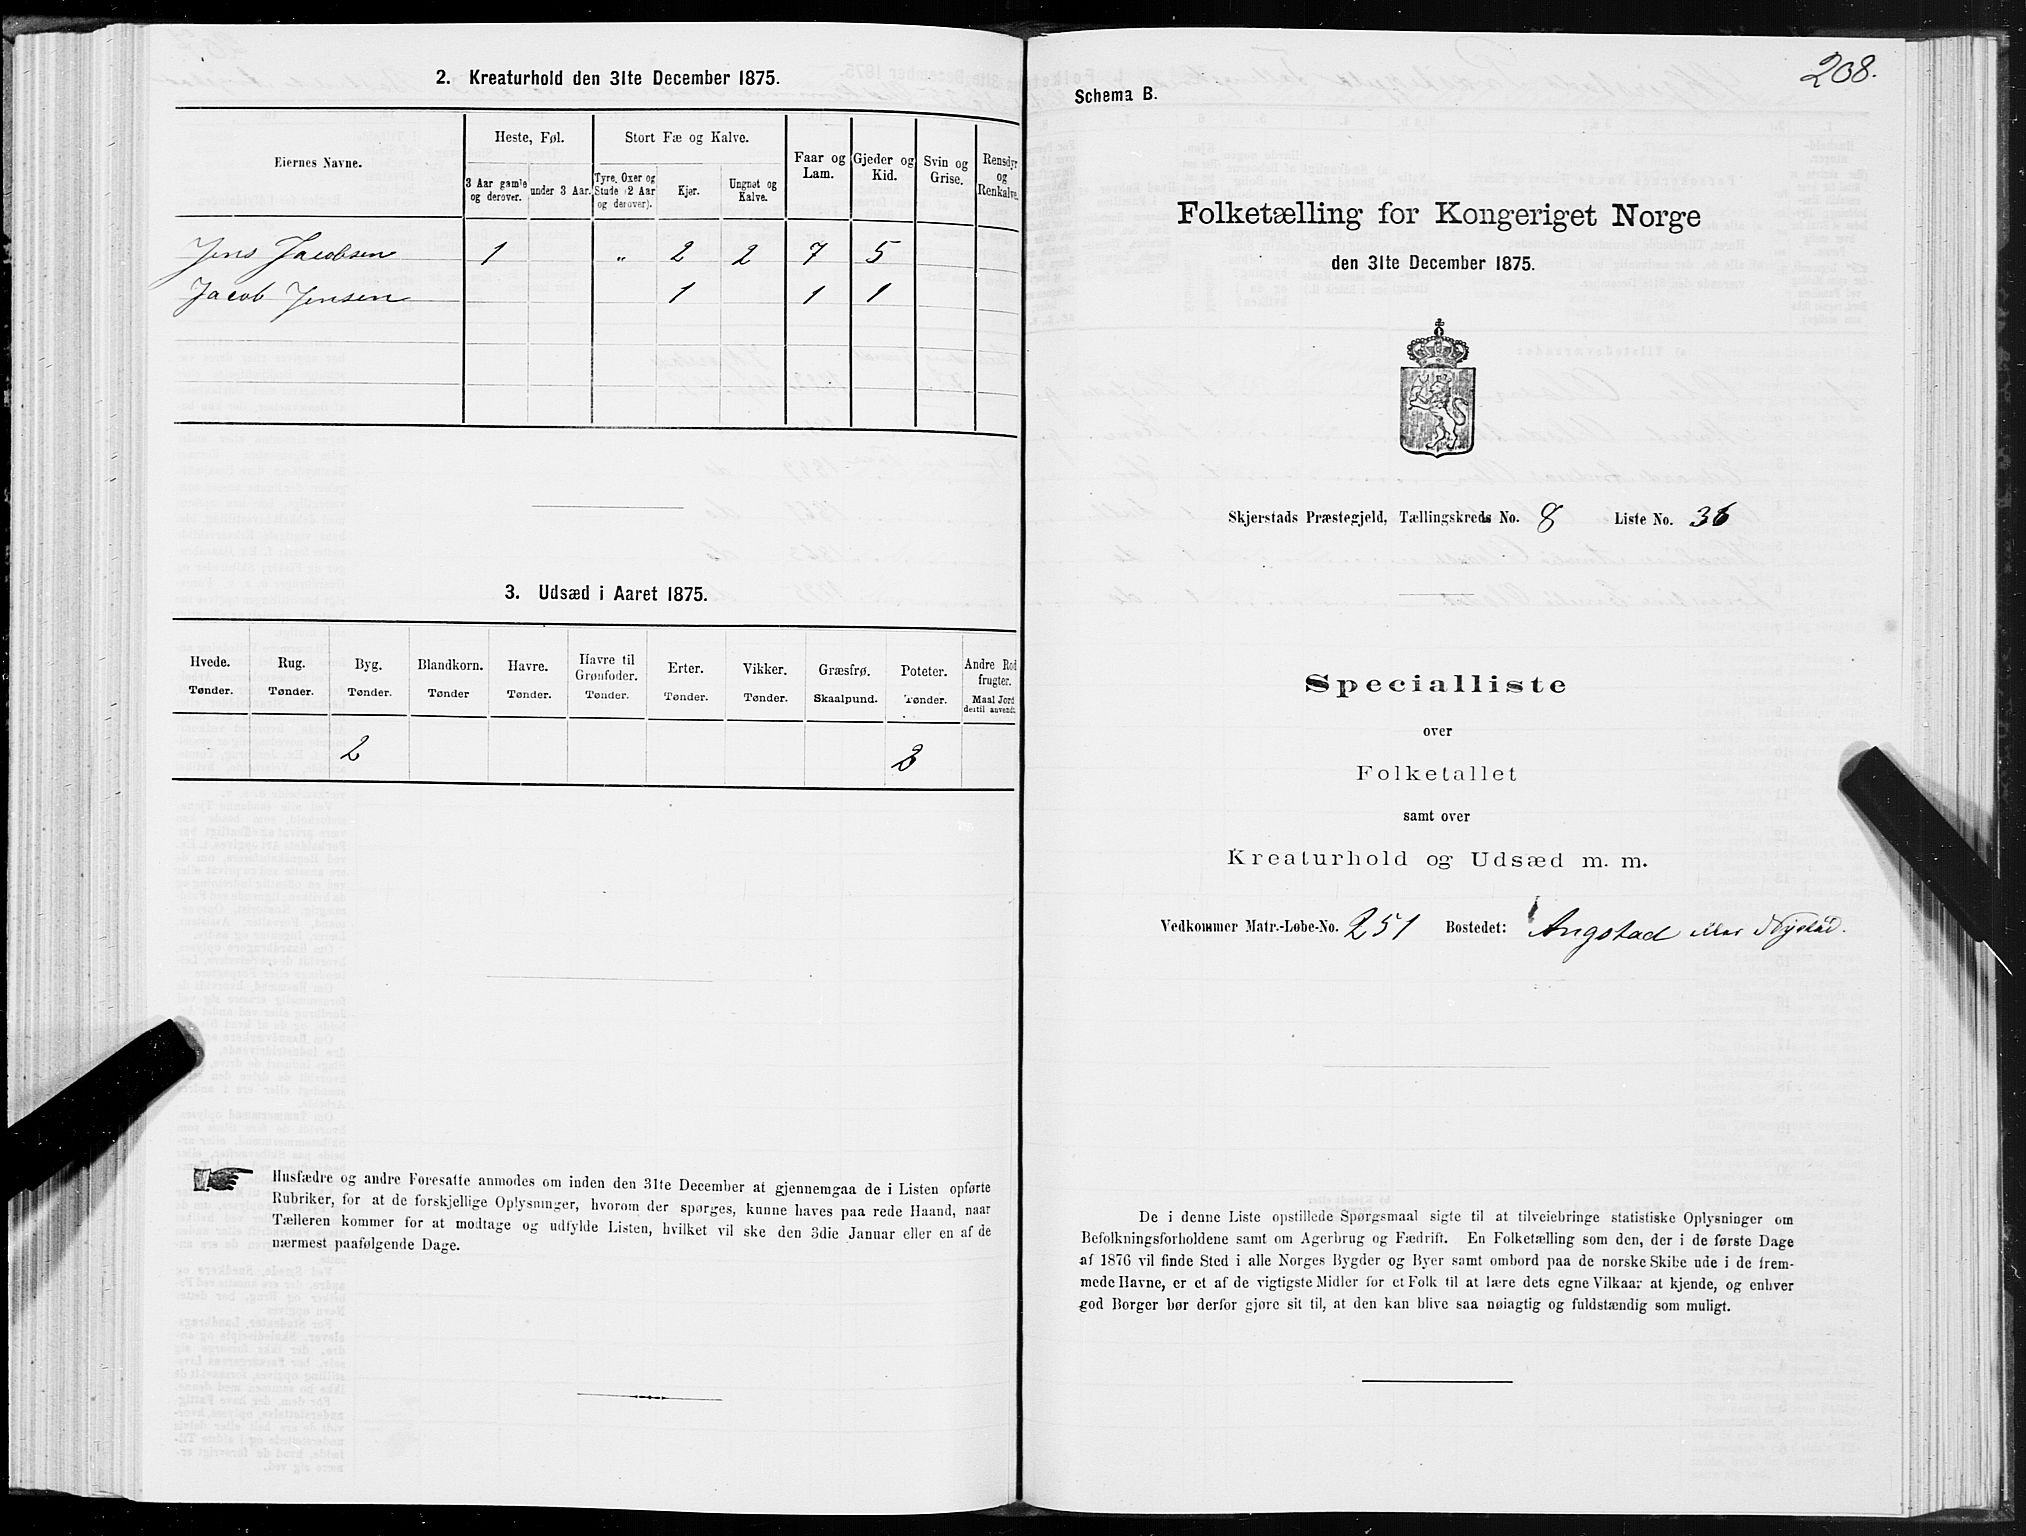 2. Kreaturhold den 31te December 1875.
Eiernes Navne.
Heste, Føl.
Stort Fæ og Kalve.
Faar og Lam.
Gjeder og Kid.
Svin og Grise.
Rensdyr og Renkalve.
3 Aar gamle og derover.
under 3 Aar.
Tyre, Oxer og Stude (2 Aar og derover).
Kjør.
Ungnøt og Kalve.
Jens Jacobsen 1 " 2 2 7 5
Jacob Jensen 1 1 1
3. Udsæd i Aaret 1875.
Hvede. Rug. Byg. Blandkorn. Havre. Havre til Grønfoder. Erter. Vikker. Græsfrø. Poteter. Andre Rodfrugter.
Tønder. Tønder. Tønder. Tønder Tønder. Tønder. Tønder. Tønder. Skaalpund. Tønder. Maal Jord dertil anvendt.
2
Husfædre og andre Foresatte anmodes om inden den 31te December at gjennemgaa de i Listen opførte
Rubriker, for at de forskjellige Oplysninger, hvorom der spørges, kunne haves paa rede Haand, naar
Tælleren kommer for at modtage og udfylde Listen, hvilket vil ske den 3die Januar eller en af de
nærmest paafølgende Dage.
208.
Schema B.
Folketælling for Kongeriget Norge
den 31te December 1875.
Skjerstads Præstegjeld, Tællingskreds No. 8 Liste No. 36
Specialliste
over
Folketallet
samt over
Kreaturhold og Udsæd m. m.
Vedkommer Matr.-Løbe-No. 251 Bostedet: Angstad eller Nystad.
De i denne Liste opstillede Spørgsmaal sigte til at tilveiebringe statistiske Oplysninger om
Befolkningsforholdene samt om Agerbrug og Fædrift. En Folketælling som den, der i de første Dage
af 1876 vil finde Sted i alle Norges Bygder og Byer samt ombord paa de norske Skibe ude i de frem-
mede Havne, er et af de vigtigste Midler for et Folk til at lære dets egne Vilkaar at kjende, og enhver
god Borger bør derfor gjøre sit til, at den kan blive saa nøiagtig og fuldstændig som muligt.